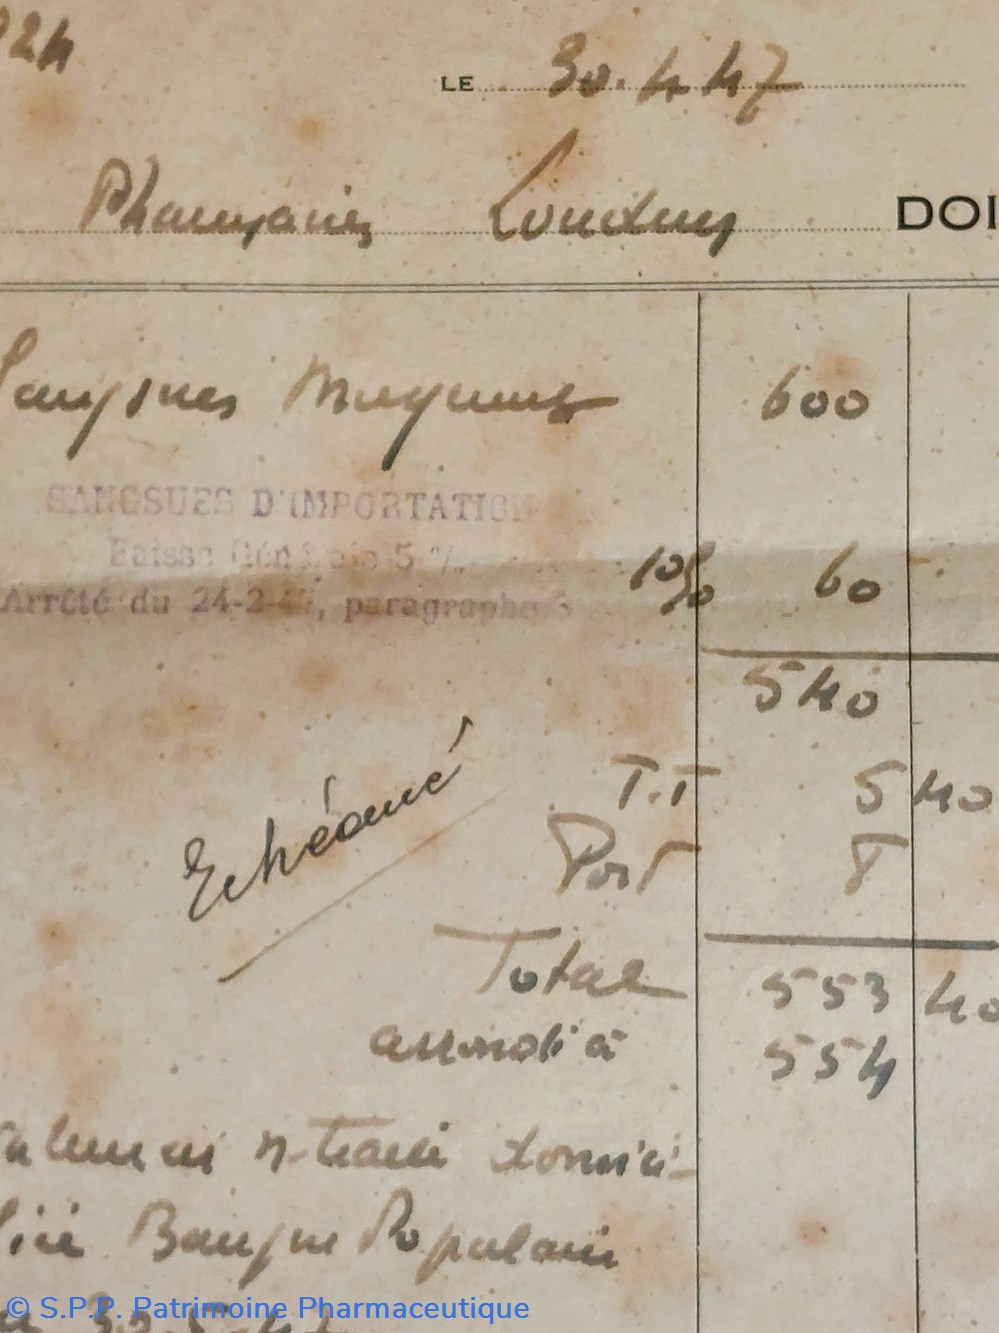 LE 30.4.47
Pharmacien Loudun DOI
Sangsues Moyennes 600
SANGSUES D'IMPORTATION
Baisse Générale 5 %
10% 60
Arrêté du 24-2-47, paragraphe 3
540
T.T 5 40
Echéance
Port 8
Total 553 40
arrondi à 554
n-traite domici-
liée Banque Populaire
30.5.47
© S.P.P. Patrimoine Pharmaceutique